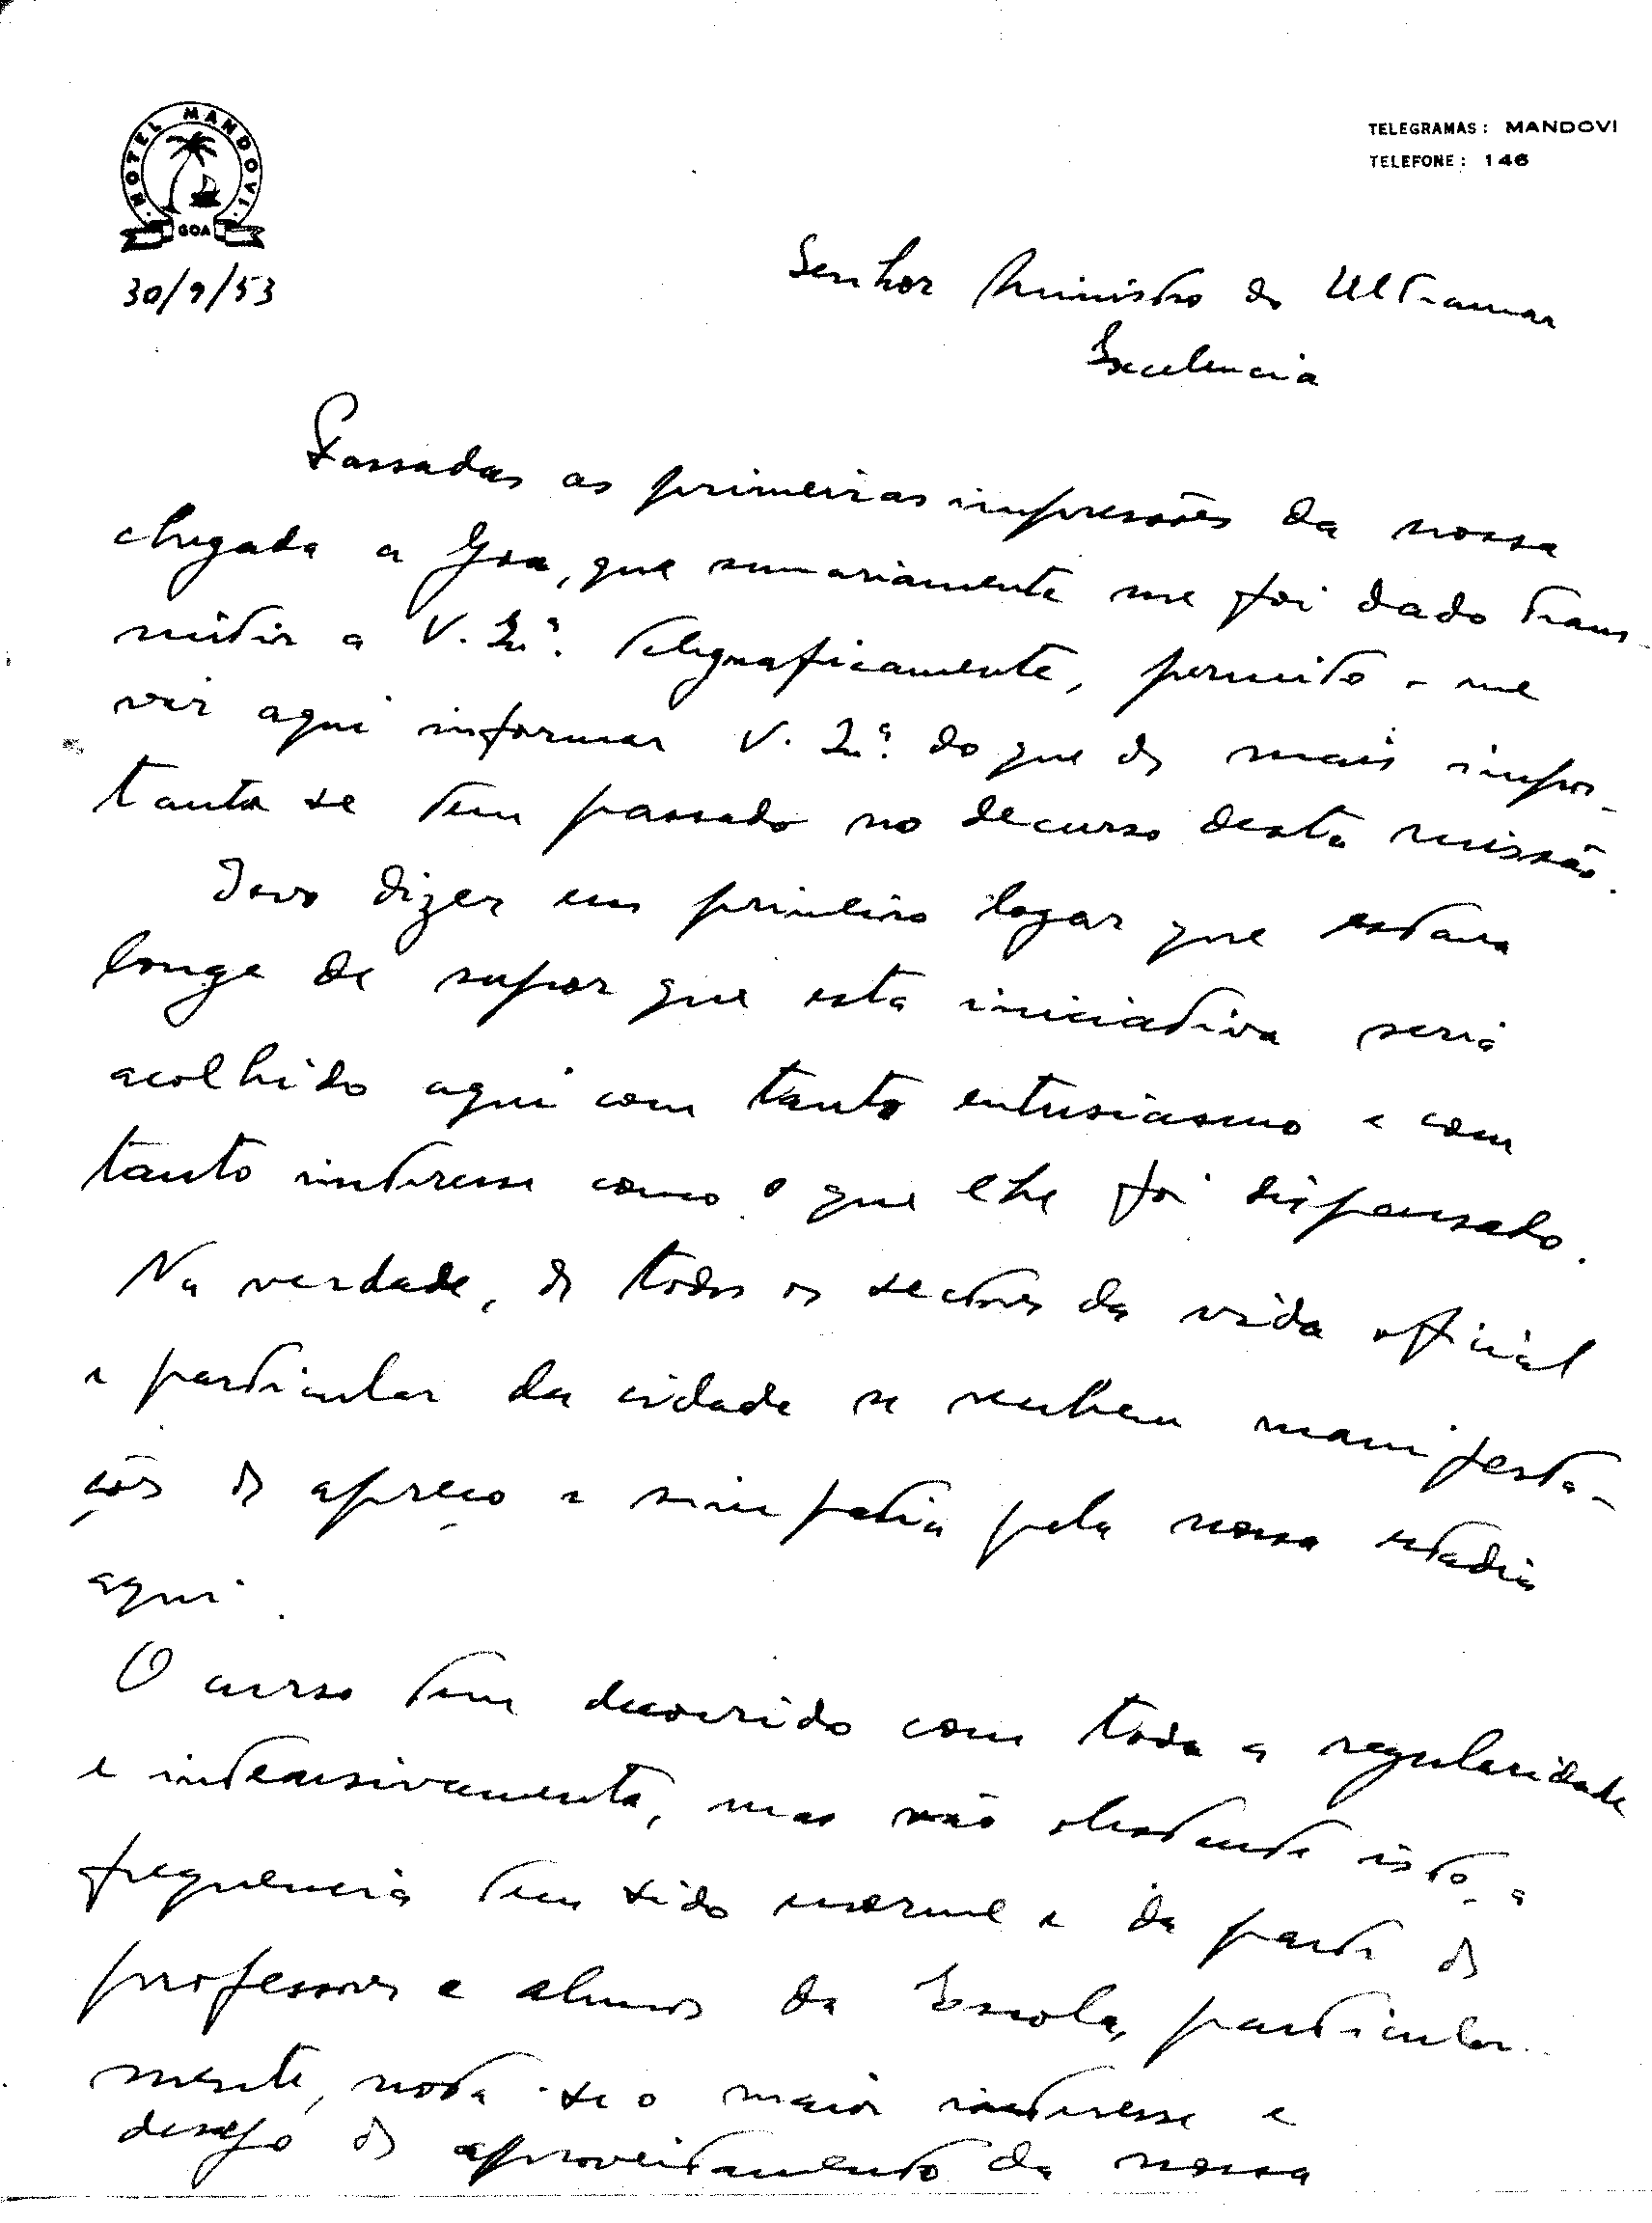 HOTEL MANDOVI
GOA
TELEGRAMAS: MANDOVI
TELEFONE: 146
30/9/53
Senhor Ministro do Ultramar
Excelencia
Passadas as primeiras impressões da nossa
chegada a Goa, que sumariamente me foi dado trans-
mitir a V. Exª. telegraficamente, permito-me
vir aqui informar V. Exª. do que de mais impor-
tante se tem passado no decurso desta missão.
Devo dizer em primeiro logar que estava
longe de supor que esta iniciativa seria
acolhido aqui com tanto entusiasmo e com
tanto interesse como o que lhe foi dispensado.
Na verdade, de todos os sectores da vida official
e particular da cidade se recebem manifesta-
ções de apreço e simpatia pela nossa estadia
aqui.
O curso tem decorrido com toda a regularidade
e intensivamente, mas não obstante isto, a
frequencia tem sido enorme e da parte de
professores e alunos da Escola, particular-
mente, nota-se o maior interesse e
desejo de aproveitamento da nossa